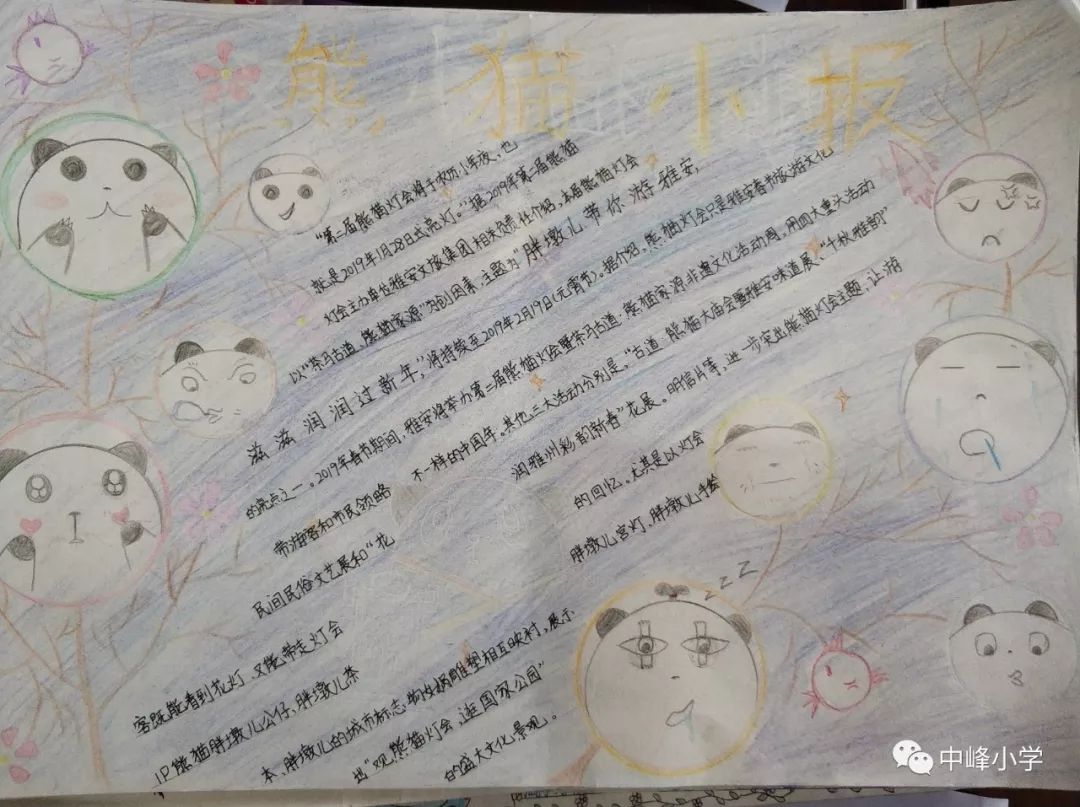 熊猫小报
"第二届熊猫灯会将于农历小年夜,也
就是2019年1月28日式亮灯。"据2019年第二届熊猫
灯会主办单位雅安文旅集团相关负责任介绍,本届熊猫灯会
以"茶马古道、熊猫家源"为创因素,主题为"胖墩儿带你游雅安,
滋滋润润过新年",将持续至2019年2月19日(元宵节)。据介绍,熊猫灯会只是雅安春节旅游文化
的亮点之一。2019年春节期间,雅安将举办第二届熊猫灯会暨茶马古道·熊猫家源非遗文化活动周,用四大重头活动
带游客和市民领略 不一样的中国年。其他三大活动分别是:"古道·熊猫大庙会暨雅安味道展、"千秋雅韵"
民间民俗文艺展和"花 润雅州彩韵新春"花展。 明信片等,进一步突出熊猫灯会主题,让游
客既能看到花灯,又能带走灯会 的回忆。尤其是以灯会
IP熊猫胖墩儿公仔、胖墩儿茶 胖墩儿宫灯、胖墩儿手绘
本、胖墩儿的城市标志,雕塑相互映衬,展示
出"观熊猫灯会,逛国家公园"
的盛大文化景观。
zZ
中峰小学